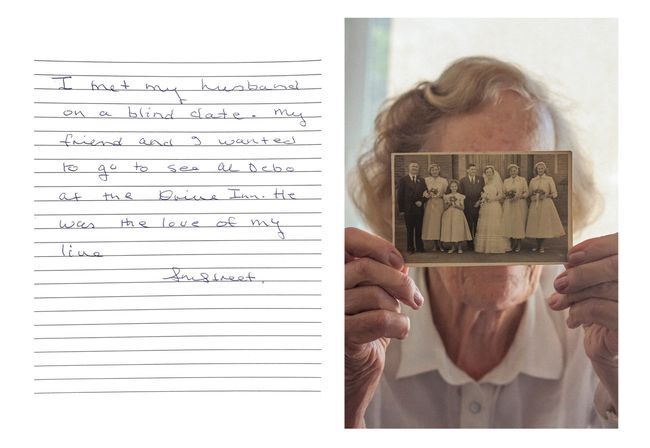 I met my husband
on a blind date. My
friend and I wanted
to go to see Al Debo
at the Drive Inn. He
was the love of my
live